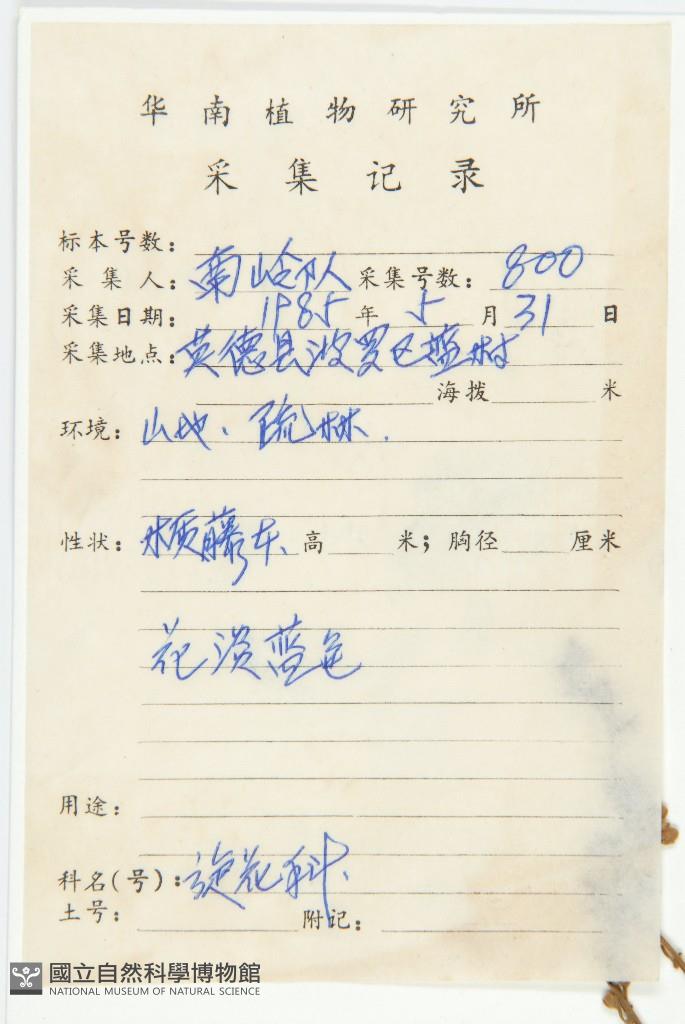 华南植物研究所
采集记录
标本号数：
采集人：南岭队 采集号数：800
采集日期：1985年5月31日
采集地点：英德县波罗区 村
海拨 米
环境：山地、疏林.
性状：木质藤本、高 米；胸径 厘米
花淡蓝色
用途：
科名(号)：旋花科、
土号： 附记：
國立自然科學博物館
NATIONAL MUSEUM OF NATURAL SCIENCE